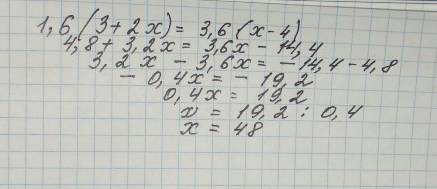 1,6 (3+2x) = 3,6 (x-4)
4,8 + 3,2x = 3,6x - 14,4
3,2x - 3,6x = -14,4-4,8
- 0,4x = - 19,2
0,4x = 19,2
x = 19,2 : 0,4
x = 48